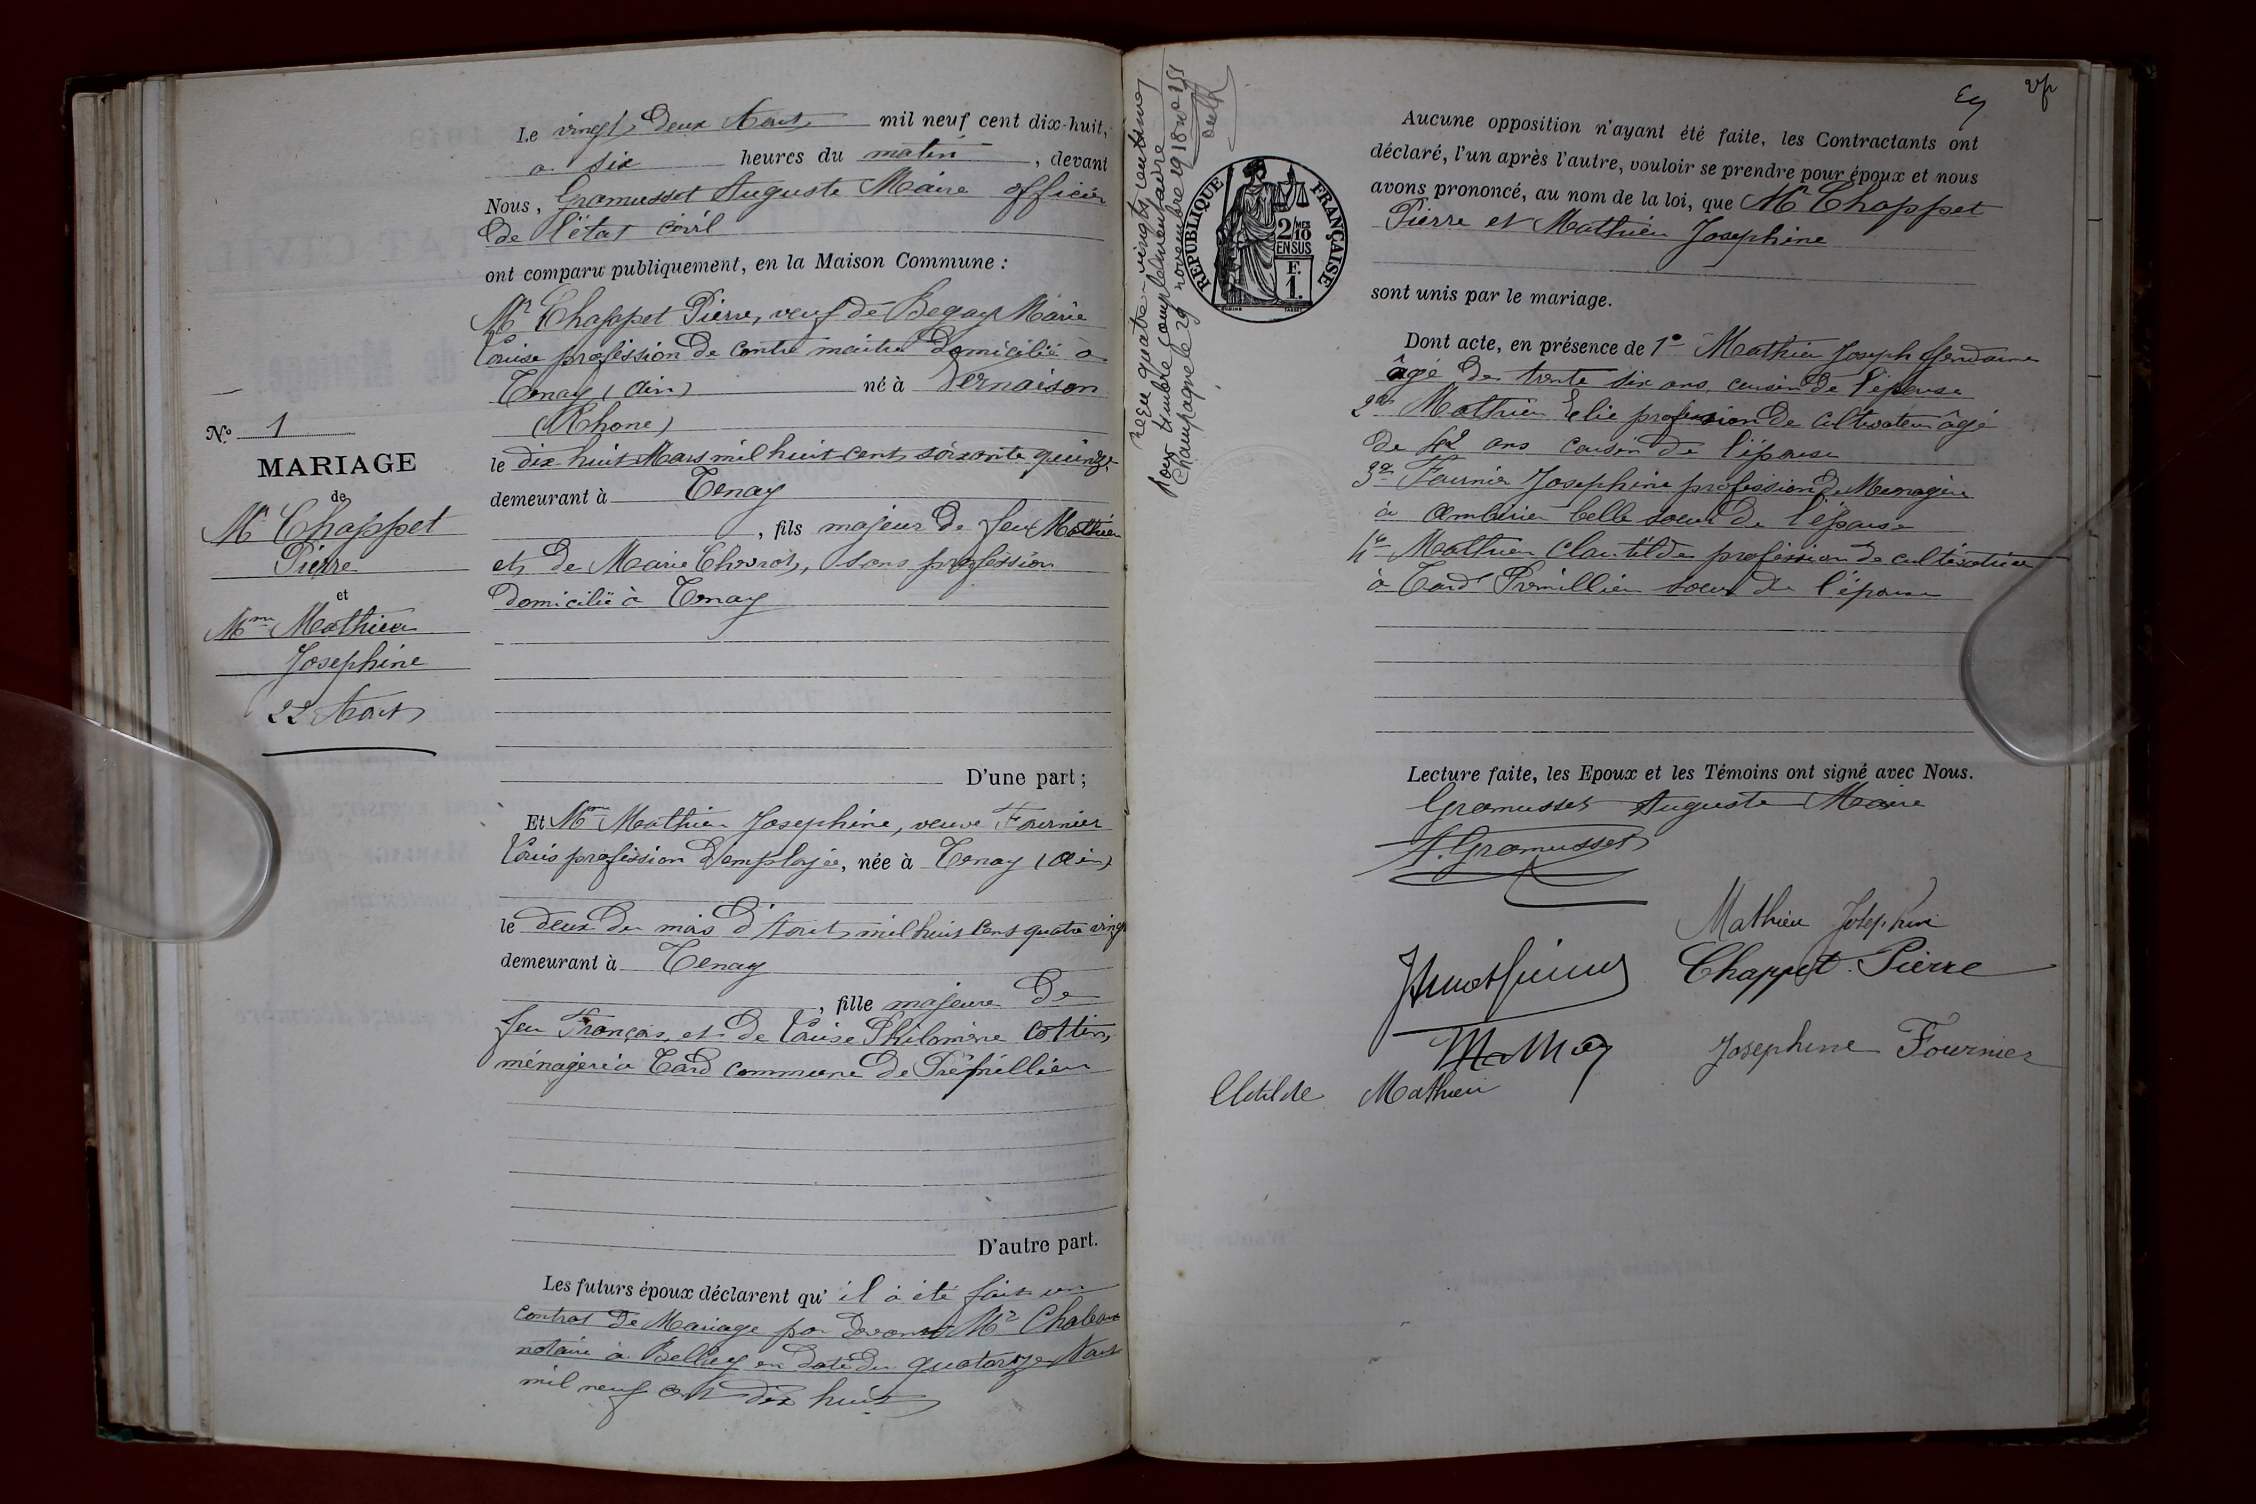 Le vingt deux Aout mil neuf cent dix-huit,
a six heures du matin, devant
Nous, Gramusset Auguste Maire officier
de l'état civil
ont comparu publiquement, en la Maison Commune :
Mr Chappet Pierre, veuf de Begay Marie
Louise profession de contre maitre domicilié à
Tenay (Ain) né à Vernaison
(Rhone)
le dix huit Mars mil huit cent soixante quinze
demeurant à Tenay
, fils majeur de feu Mathieu
et de Marie, sans profession
domicilié à Tenay
D'une part ;
Et Mme Mathieu Josephine, veuve Fournier
Louis profession d'employée, née à Tenay (Ain)
le deux du mois d'Aout mil huit cent quatre vingt
demeurant à Tenay
, fille majeure de
feu François, et de Louise Philomène Cottin,
ménagère à Tard commune de Prémillieu
D'autre part.
Les futurs époux déclarent qu' il à été fait un
contrat de Mariage par devant Mr
notaire à Belley en date du quatorze Aout
mil neuf cent dix huit
No 1
MARIAGE
de
Mr Chappet
Pierre
et
Mme Mathieu
Josephine
22 Aout
reçu quatre-vingts centimes
pour timbre complémentaire
Champagne le 29 novembre 1918 no 155
RÉPUBLIQUE FRANÇAISE
2/10 MES
EN SUS
F.
1.
Aucune opposition n'ayant été faite, les Contractants ont
déclaré, l'un après l'autre, vouloir se prendre pour époux et nous
avons prononcé, au nom de la loi, que Mr Chappet
Pierre et Mathieu Josephine
sont unis par le mariage.
Dont acte, en présence de 1o Mathieu Joseph Gendarme
âgé de trente six ans, cousin de l'épouse
2o Mathieu Elie profession de cultivateur âgé
de 42 ans cousin de l'épouse
3o Fournier Josephine profession de Menagère
à Ambérieu belle soeur de l'épouse
4o Mathieu Clautilde profession de cultivatrice
à Tard Prémillieu soeur de l'épouse
Lecture faite, les Epoux et les Témoins ont signé avec Nous.
Gramusset Auguste Maire
A. Gramusset
Mathieu Josephine
Chappet Pierre
Josephine Fournier
Clotilde Mathieu